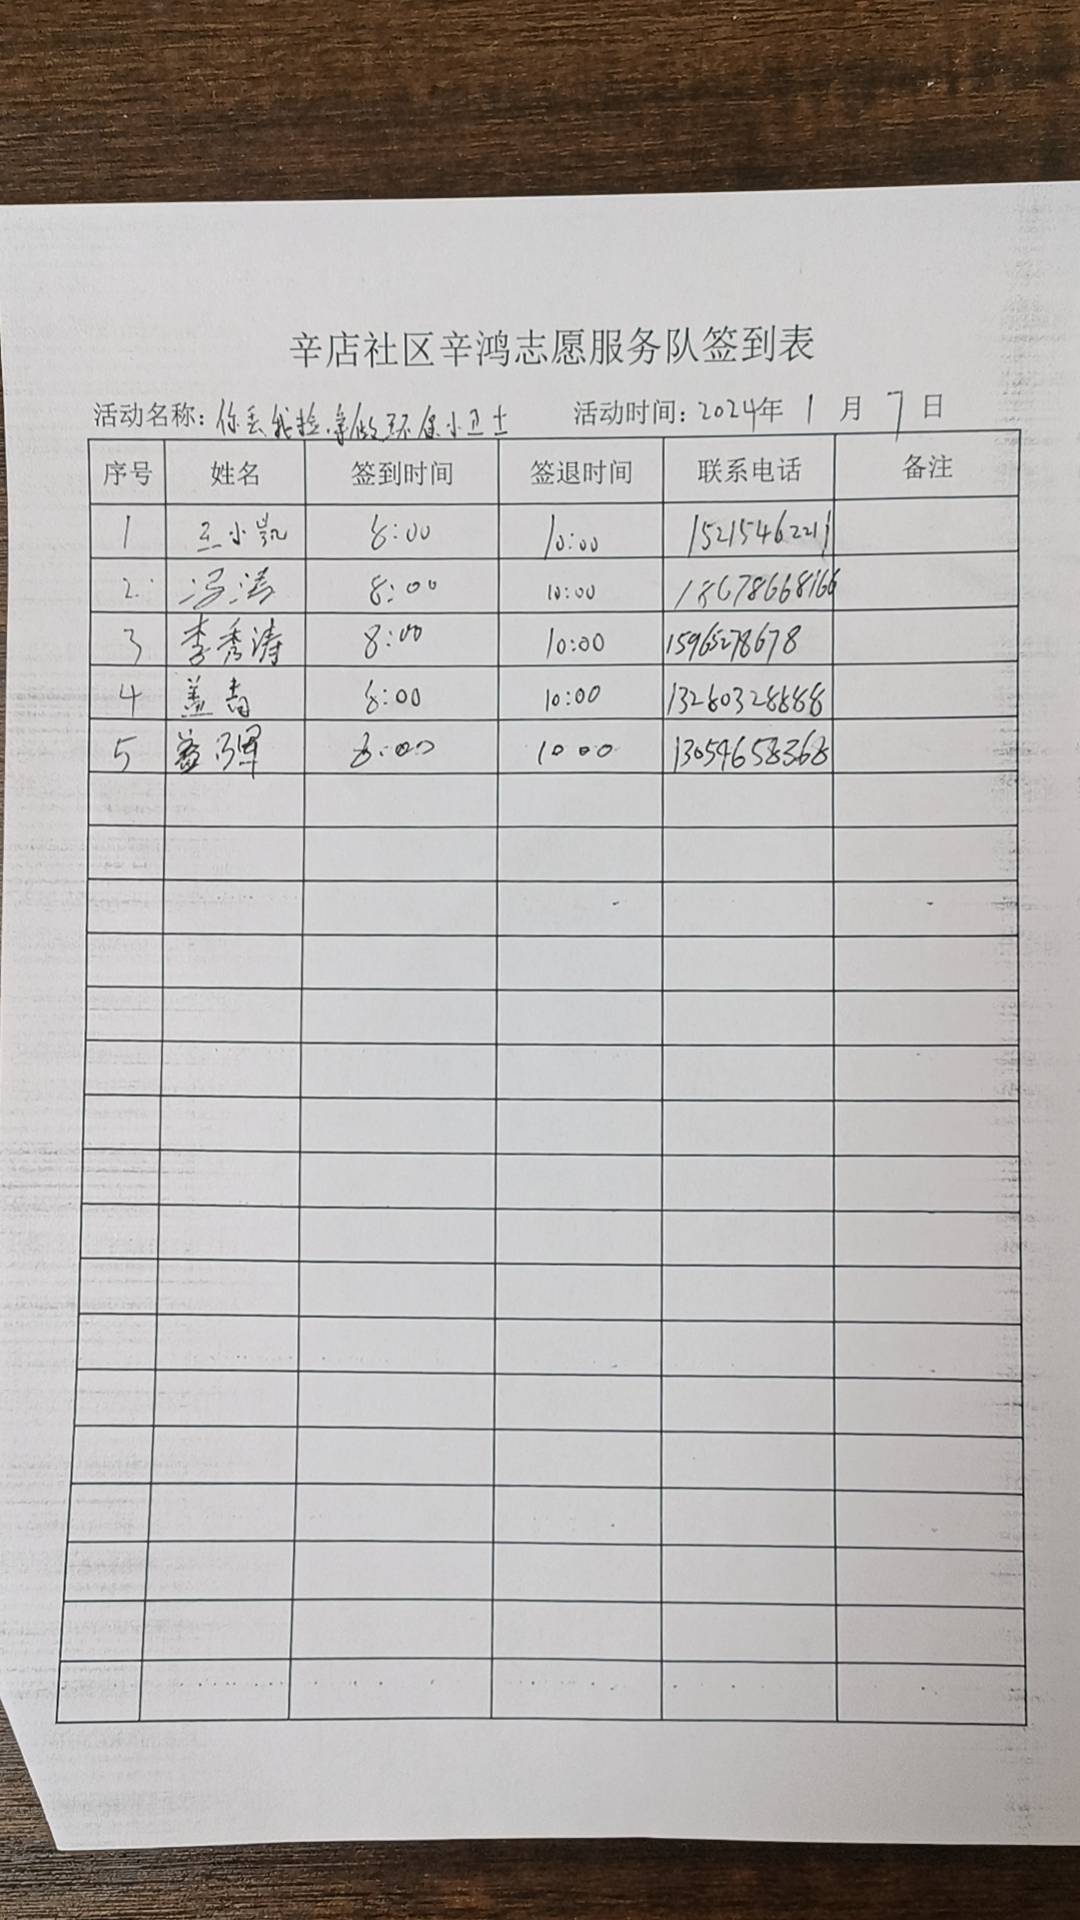 辛店社区辛鸿志愿服务队签到表
活动名称：你丢我捡，争做环保小卫士 活动时间：2024年 1 月 7 日
序号 姓名 签到时间 签退时间 联系电话 备注
1 王小凯 8:00 10:00 15215462211
2 冯涛 8:00 10:00 18678668166
3 李秀涛 8:00 10:00 15965278678
4 盖青 8:00 10:00 13280328888
5 8:00 10:00 13054658368